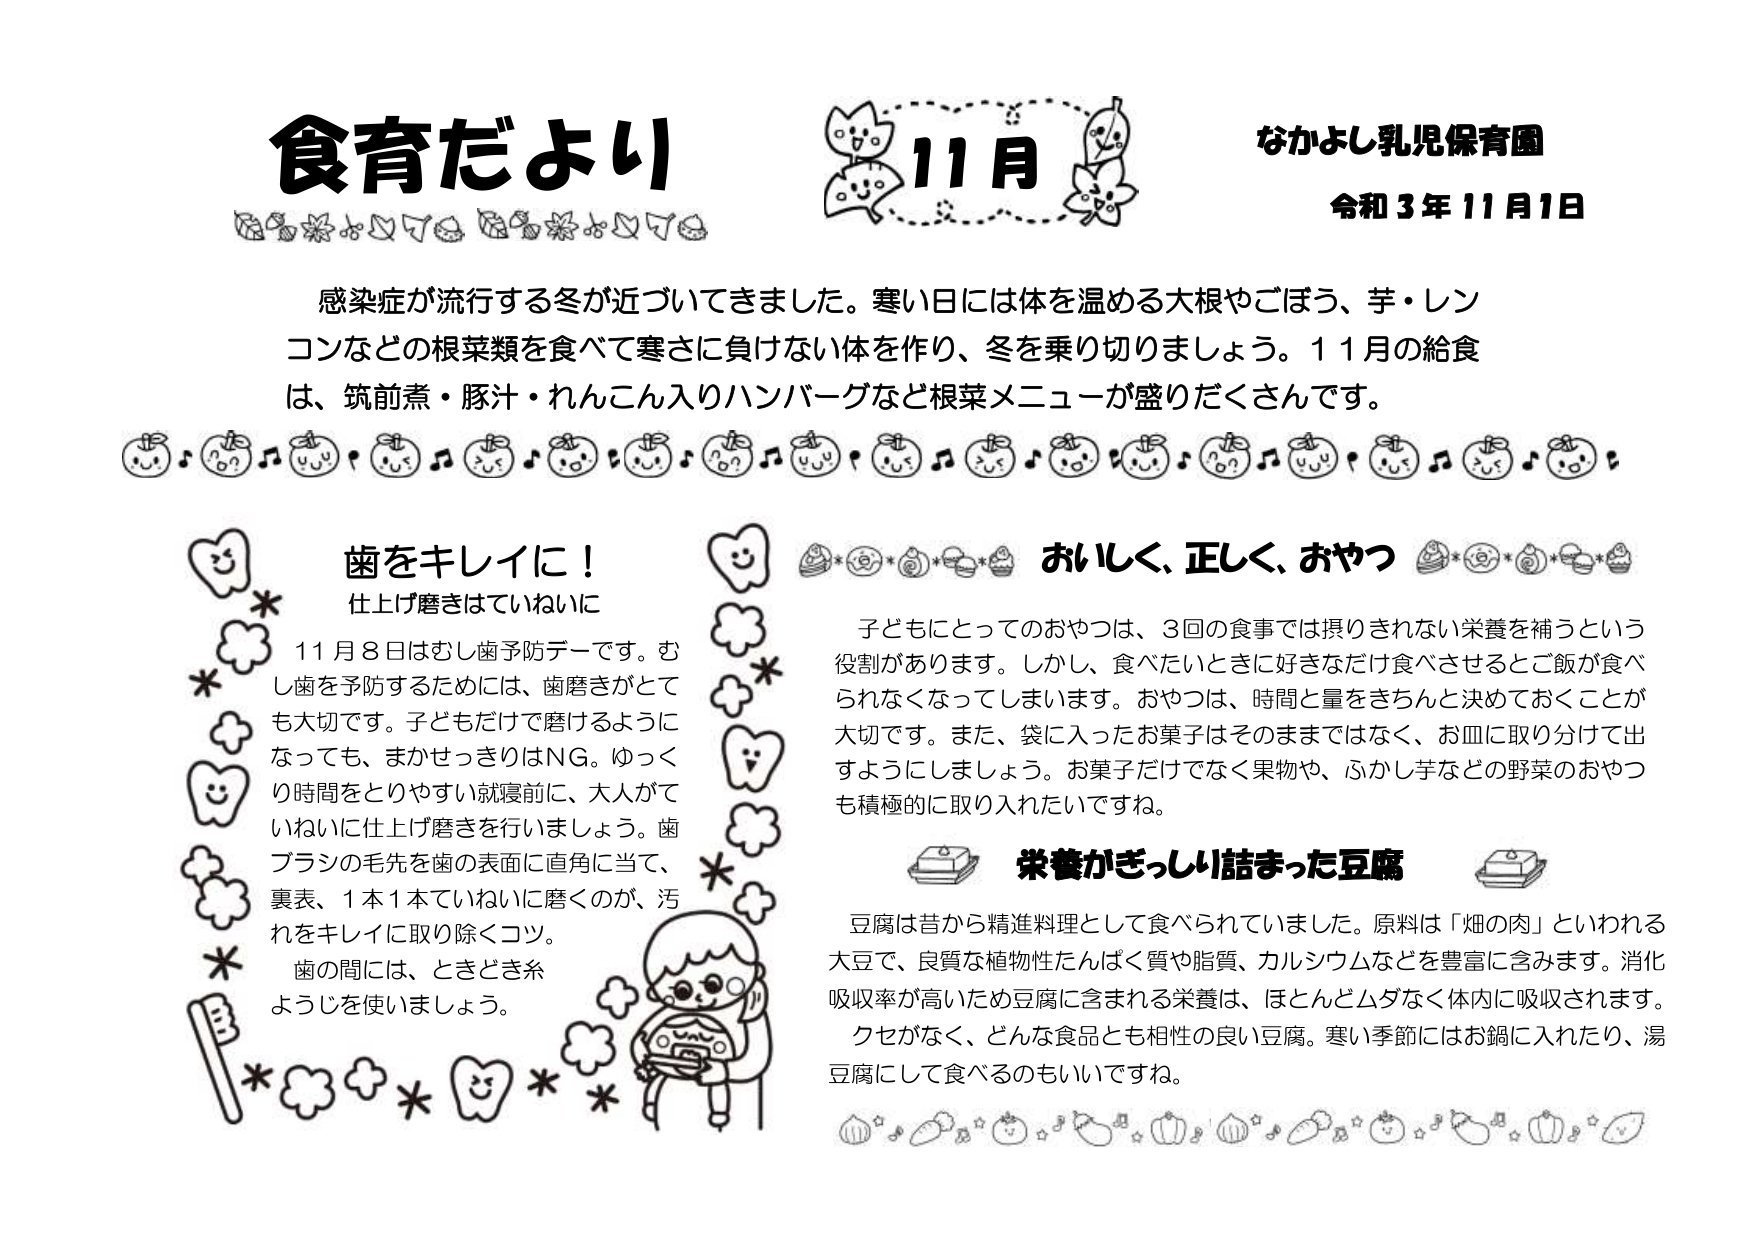 食育だより
11月
なかよし乳児保育園
令和3年11月1日
感染症が流行する冬が近づいてきました。寒い日には体を温める大根やごぼう、芋・レン
コンなどの根菜類を食べて寒さに負けない体を作り、冬を乗り切りましょう。11月の給食
は、筑前煮・豚汁・れんこん入りハンバーグなど根菜メニューが盛りだくさんです。
歯をキレイに！
仕上げ磨きはていねいに
11月８日はむし歯予防デーです。む
し歯を予防するためには、歯磨きがとて
も大切です。子どもだけで磨けるように
なっても、まかせっきりはNG。ゆっく
り時間をとりやすい就寝前に、大人がて
いねいに仕上げ磨きを行いましょう。歯
ブラシの毛先を歯の表面に直角に当て、
裏表、1本1本ていねいに磨くのが、汚
れをキレイに取り除くコツ。
歯の間には、ときどき糸
ようじを使いましょう。
おいしく、正しく、おやつ
子どもにとってのおやつは、3回の食事では摂りきれない栄養を補うという
役割があります。しかし、食べたいときに好きなだけ食べさせるとご飯が食べ
られなくなってしまいます。おやつは、時間と量をきちんと決めておくことが
大切です。また、袋に入ったお菓子はそのままではなく、お皿に取り分けて出
すようにしましょう。お菓子だけでなく果物や、ふかし芋などの野菜のおやつ
も積極的に取り入れたいですね。
栄養がぎっしり詰まった豆腐
豆腐は昔から精進料理として食べられていました。原料は「畑の肉」といわれる
大豆で、良質な植物性たんぱく質や脂質、カルシウムなどを豊富に含みます。消化
吸収率が高いため豆腐に含まれる栄養は、ほとんどムダなく体内に吸収されます。
クセがなく、どんな食品とも相性の良い豆腐。寒い季節にはお鍋に入れたり、湯
豆腐にして食べるのもいいですね。